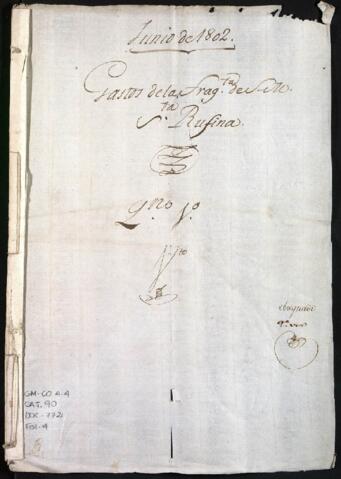 Junio de 1802.
Gastos de la Frag.ta de S. M.
S.ta Rufina.
Q.no
GM-CO A-A
CAT. 90
DOC-772
FOI-4